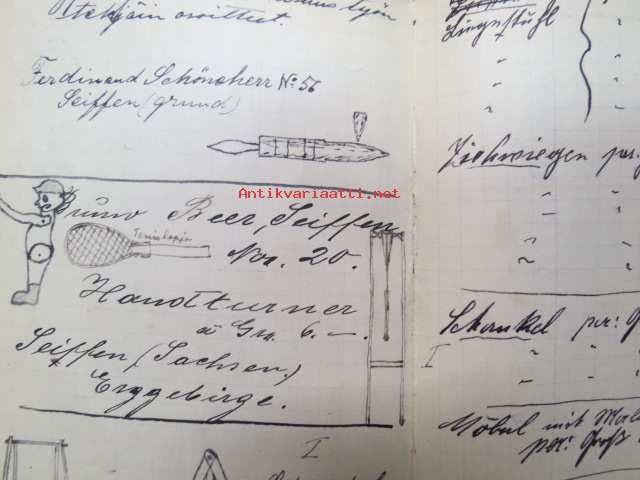 työn
tekijäin osoitteet.
Ferdinand Schönherr No 56
Seiffen (grund)
Antikvariaatti.net
Bruno Beer, Seiffen
Tennislapio
Nro. 20.
Handturner
à Gr. 6.—.
Seiffen (Sachsen)
Erzgebirge.
I
Liegestuhl
"
"
"
Ziehwiegen per
"
"
"
"
Schaukel per: G
I " "
" "
Möbel mit
per: Groß